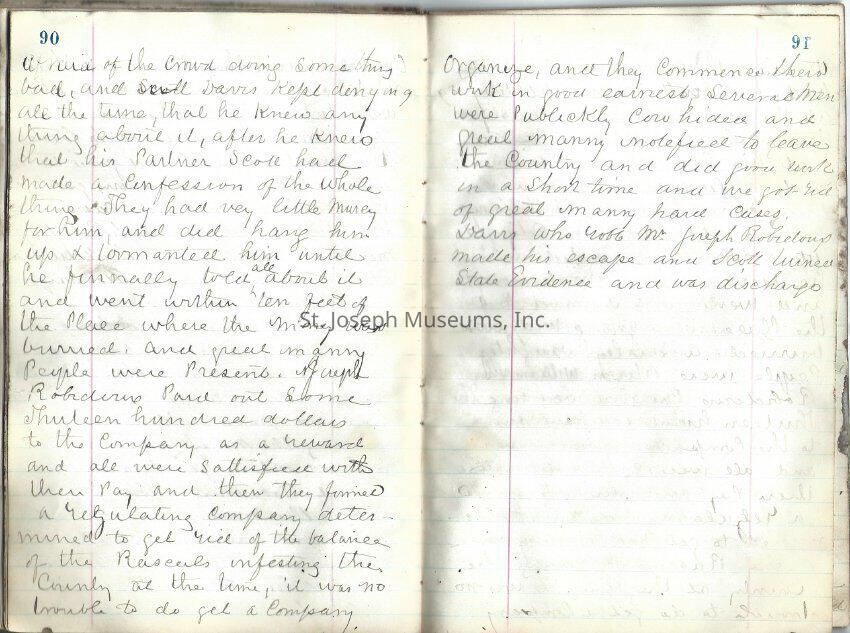 90
afraid of the Crowd doing Some thing
bad, and Scott Davis Kept denying
all the time, that he Knew any
thing about it, after he Knew
that his Partner Scott had
made a Confession of the Whole
thing. They had vey little Mercy
for him, and did hang him
up & tormanted him until
he finnally told all about it
and went within ten feet of
the Place where the Money was
burried. and great manny
People were Present. Joseph
Robidoux Paid out Some
Thirteen hundred dollars
to the Company as a reward
and all were Sattisfied with
their Pay and then they formed
a regulating Company deter-
mined to get rid of the balance
of the Rascals infesting the
County at the time, it was no
trouble to do get a Company
91
Organize, and they Commence their
work in good earnest Several Men
were Publickly Cow hided and
great manny notefied to leave
the Country and did good work
in a Short time and we got rid
of great manny hard Cases.
Davis who robb Mr Joseph Robidoux
made his escape and Scott turned
State Evidence and was discharge
St. Joseph Museums, Inc.